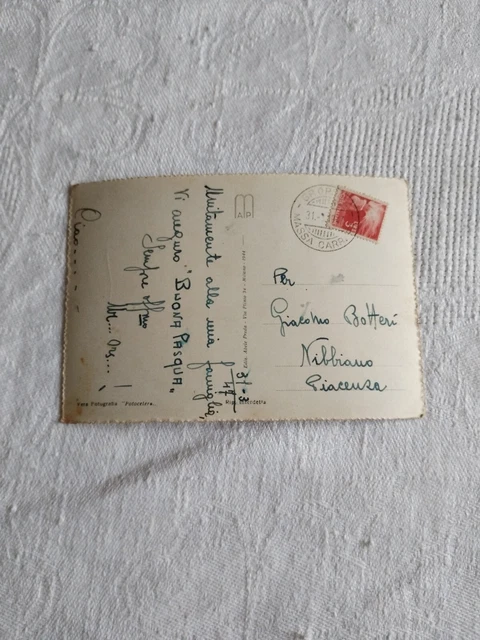 Unitamente alla mia famiglia,
Vi auguro "BUONA PASQUA„
Sempre aff/mo
Ciao
31-3
47
Per
Giacomo Botteri
Nibbiano
Piacenza
MASSA CARR.
31.
Vera Fotografia "Fotocelere„